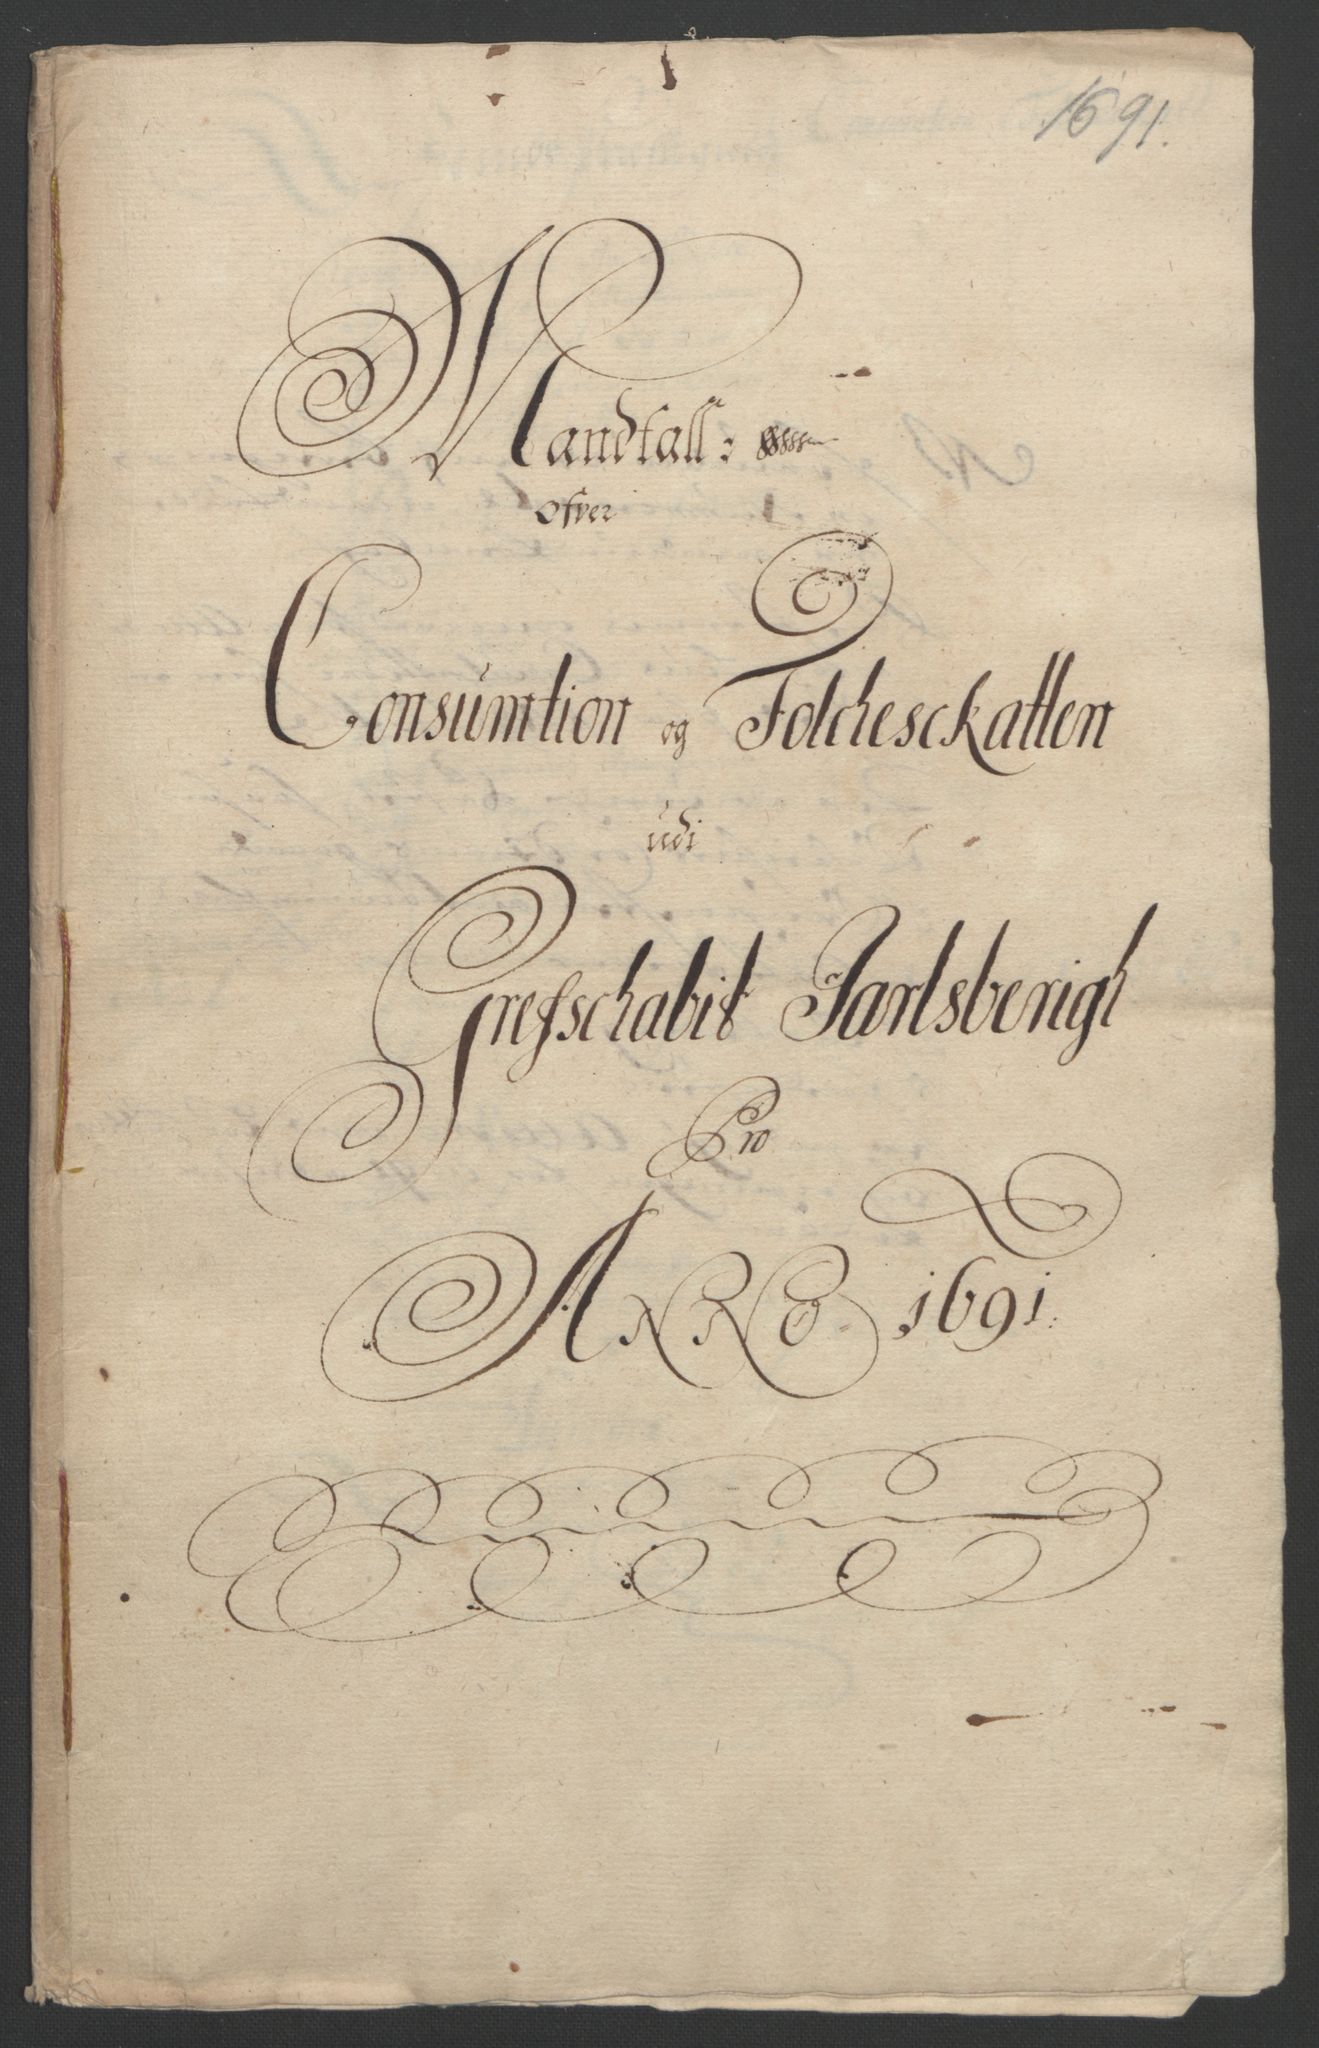 1691.
Mandtall
ofver
Consumtion og Folchesckatten
udi
Grefschabit Jarlsberigh
Pro
ANNO 1691.